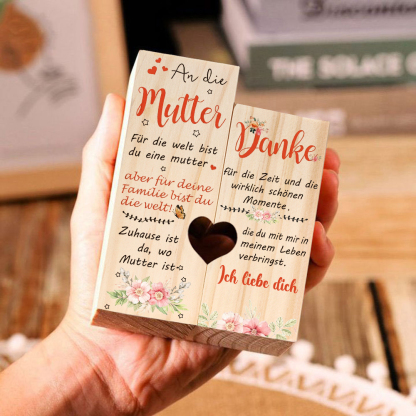 An die
Mutter
Für die welt bist
du eine mutter
aber für deine
Familie bist du
die welt!
Zuhause ist
da, wo
Mutter ist
Danke
für die Zeit und die
wirklich schönen
Momente,
die du mit mir in
meinem Leben
verbringst.
Ich liebe dich
THE SOLACE O